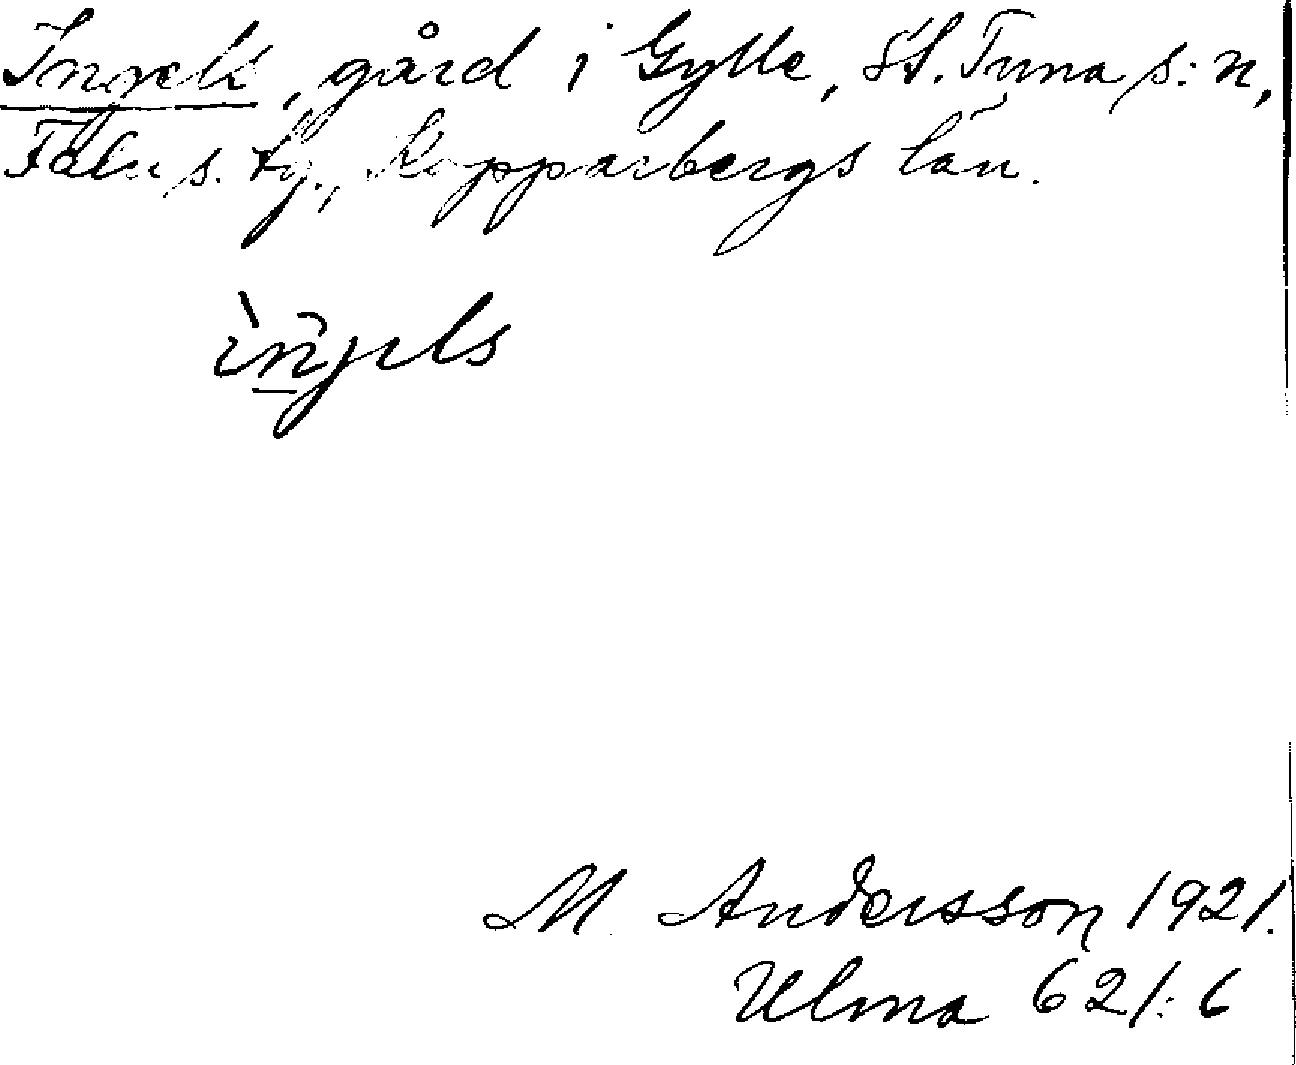 Ingels, gård i Gylle, St. Tuna s:n,
Falu s. tg., Kopparbergs län.
ìngels
M. Andersson 1921.
Ulma 621:6